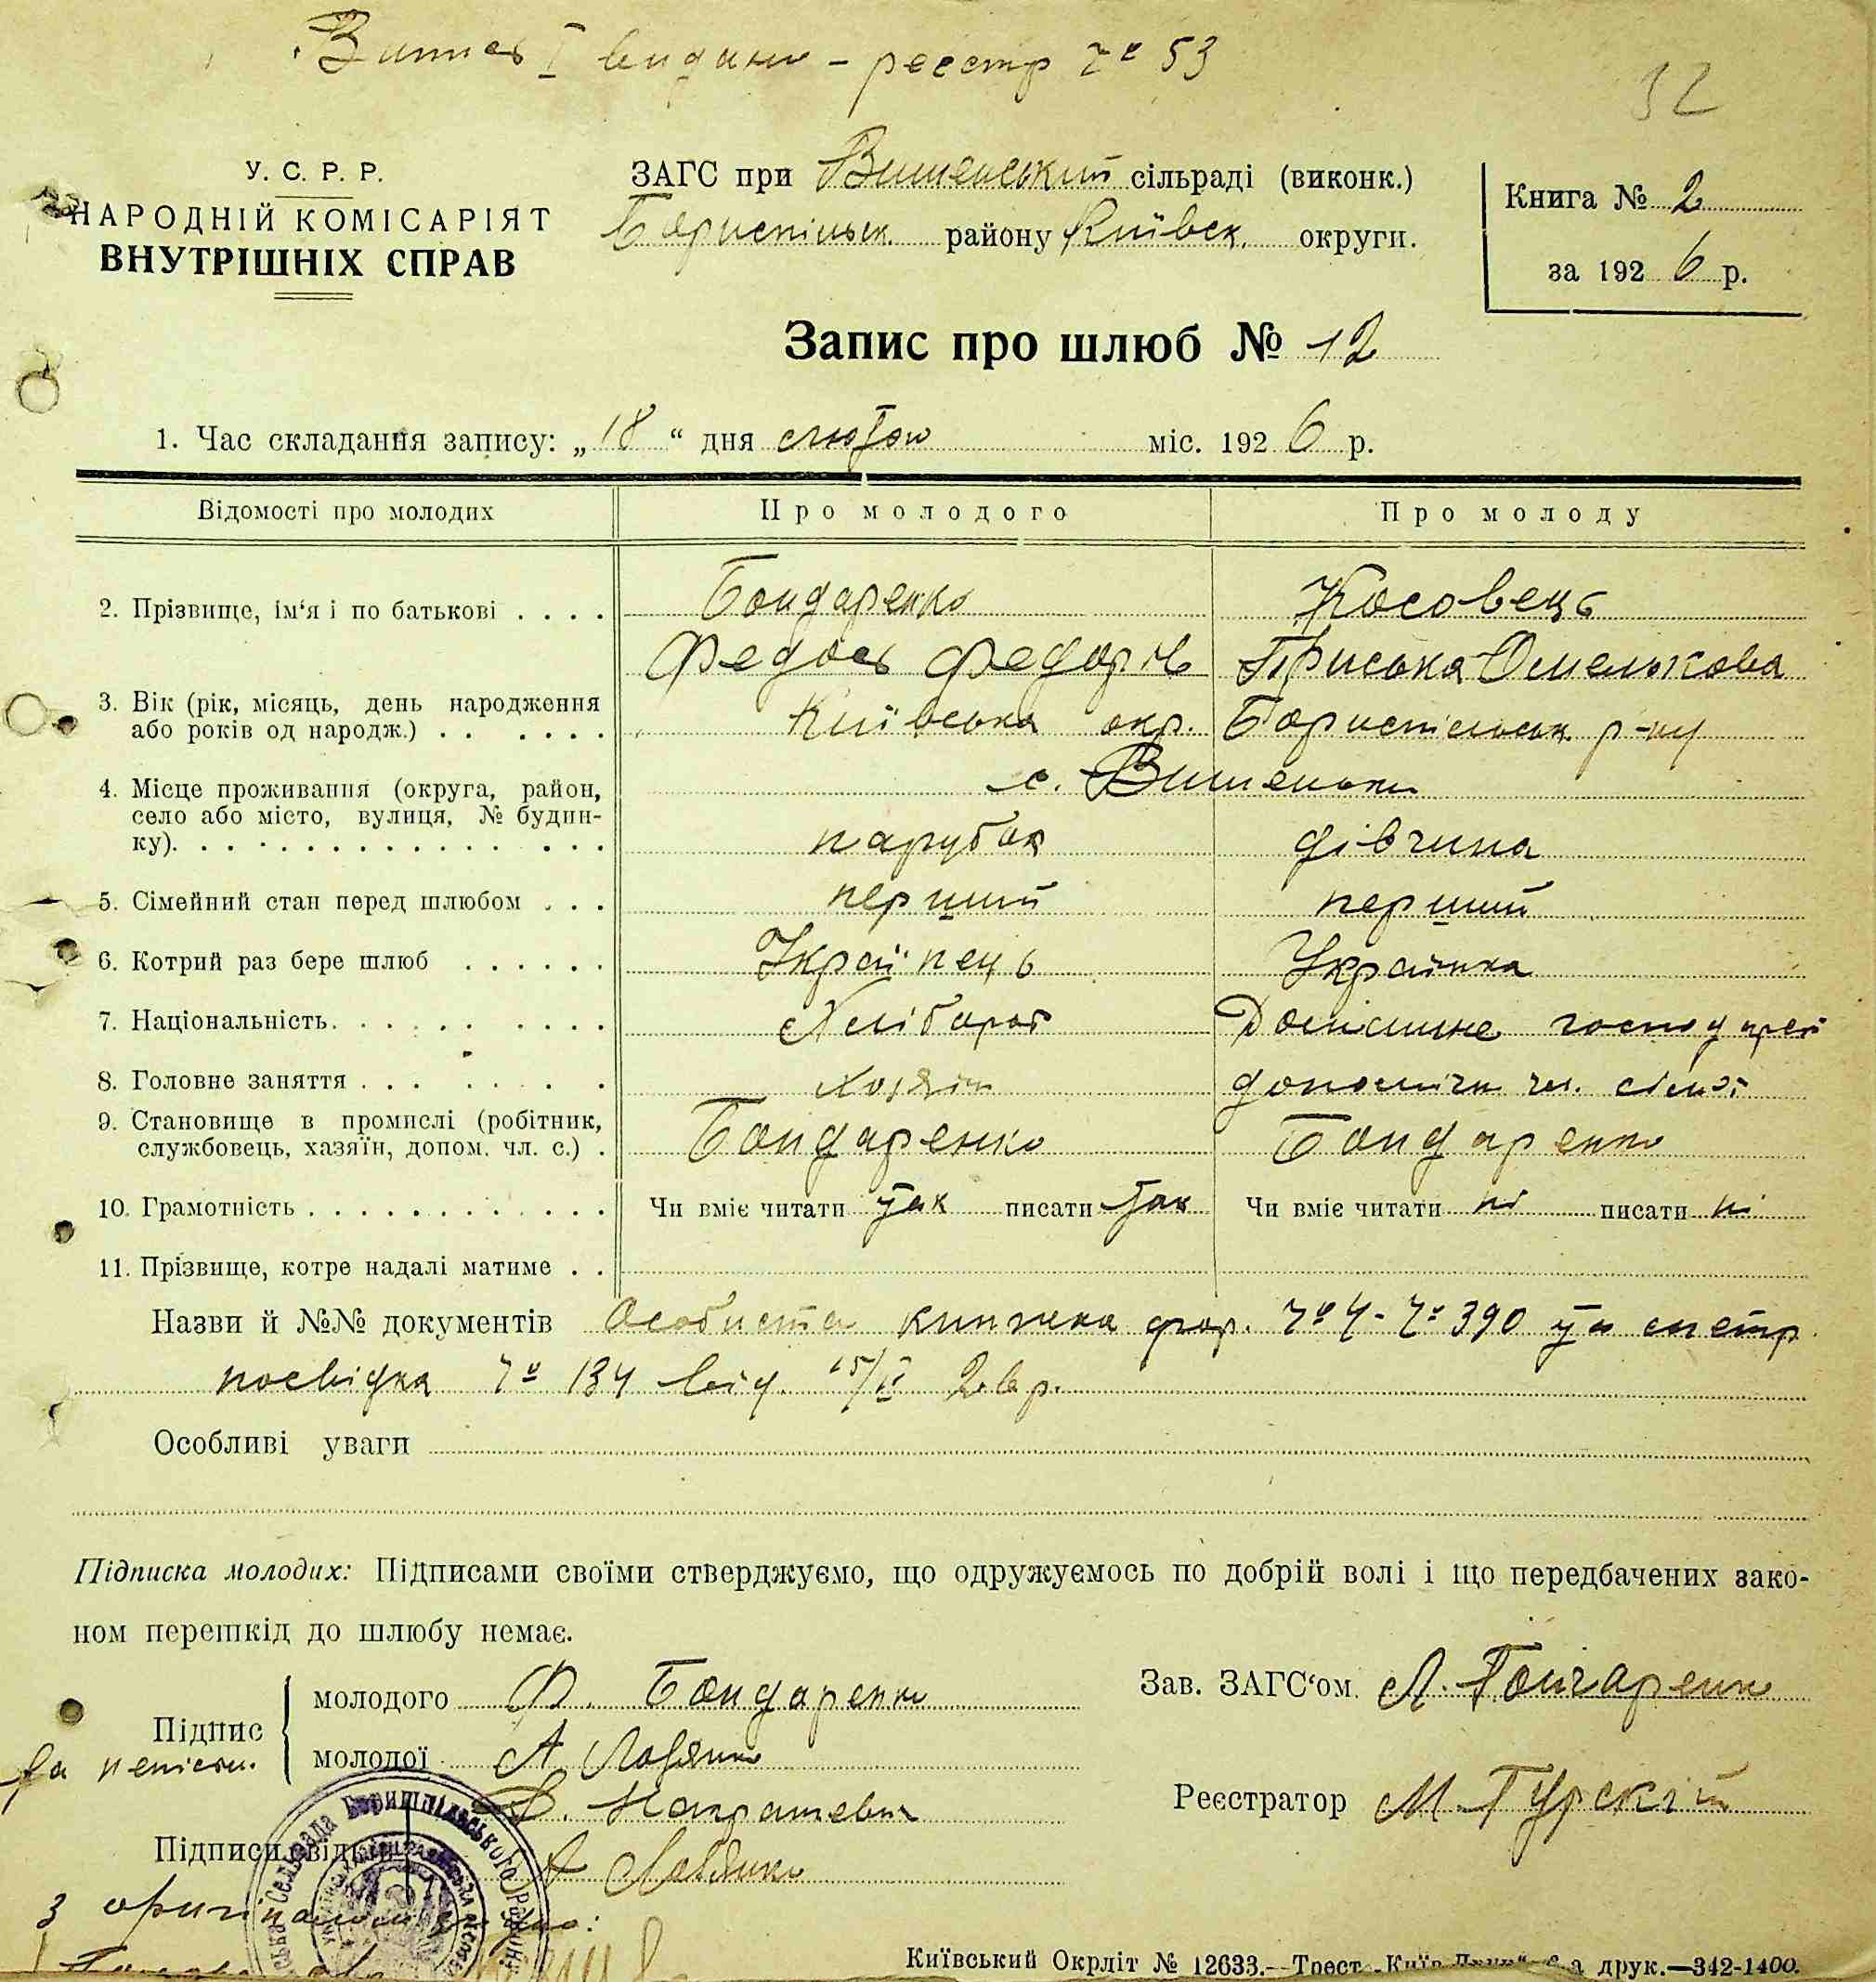 Витяг I видано – реєстр № 53
32
У. С. Р. Р.
НАРОДНІЙ КОМІСАРІЯТ
ВНУТРІШНІХ СПРАВ
ЗАГС при Вишенський сільраді (виконк.)
Бориспільск. району Київск. округи.
Книга № 2
за 1926 р.
Запис про шлюб № 12
1. Час складання запису: „18“ дня лютого міс. 1926 р.
Відомості про молодих Про молодого Про молоду
2. Прізвище, ім‘я і по батькові . . . . Бондаренко Косовець
Федось Федорів Пріська Омелькова
3. Вік (рік, місяць, день народження Київська окр. Бориспільськ. р-ну
або років од народж.) . . . . . .
4. Місце проживання (округа, район, с. Вишеньки
село або місто, вулиця, № будин-
ку). . . . . . . . . . . . . . . . парубок дівчина
5. Сімейний стан перед шлюбом . . . перший перший
6. Котрий раз бере шлюб . . . . . . Українець Українка
7. Національність. . . . . . . . . . Хлібороб Домашнє господарст
8. Головне заняття . . . . . . . . Хозяїн допоміжн чл. сім'ї
9. Становище в промислі (робітник,
службовець, хазяїн, допом. чл. с.) . Бондаренко Бондаренко
10. Грамотність . . . . . . . . . . . . . Чи вміє читати так писати так Чи вміє читати ні писати ні
11. Прізвище, котре надалі матиме . .
Назви й №№ документів Особиста книжка фор. № 4 - № 390
посвідка № 134 від. 15/II 26 р.
Особливі уваги
Підписка молодих: Підписами своїми стверджуємо, що одружуємось по добрій волі і що передбачених зако-
ном перешкід до шлюбу немає.
Підпис
молодого Ф. Бондаренко
Зав. ЗАГС‘ом. Л. Гончаренко
за неписм.
молодої А
Реєстратор М. Гурскій
Підписи свідків А
З оригіналом згідно:
Київський Окрліт № 12633.— Трест „Київ-Друк“ 6-а друк.—342-1400.